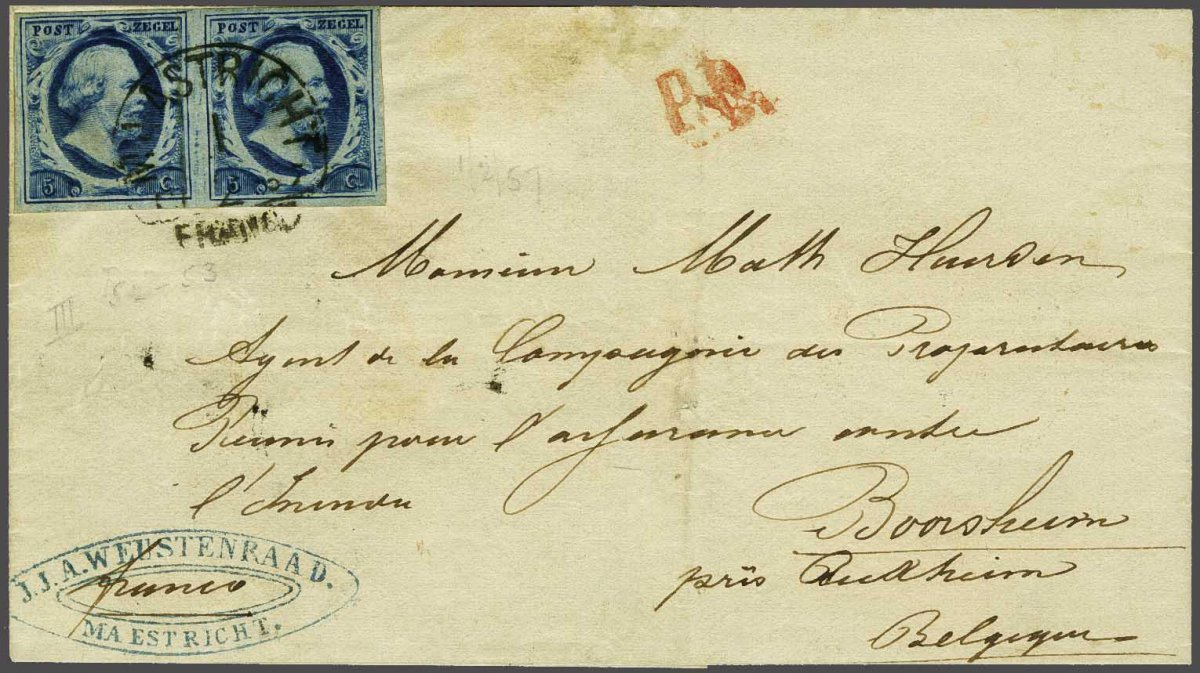 POST ZEGEL POST ZEGEL
MAASTRICHT
5 C. 5 C.
FRANCO
P.D.
1/2/59
III 52-53
Monsieur Math Huersen
Agent de la Compagnie des Propriétaires
Réunis pour l'assurance contre
l'Incendie
Boorsheim
près Reckheim
Belgique
J.J.A. WEUSTENRAAD.
franco
MAESTRICHT.